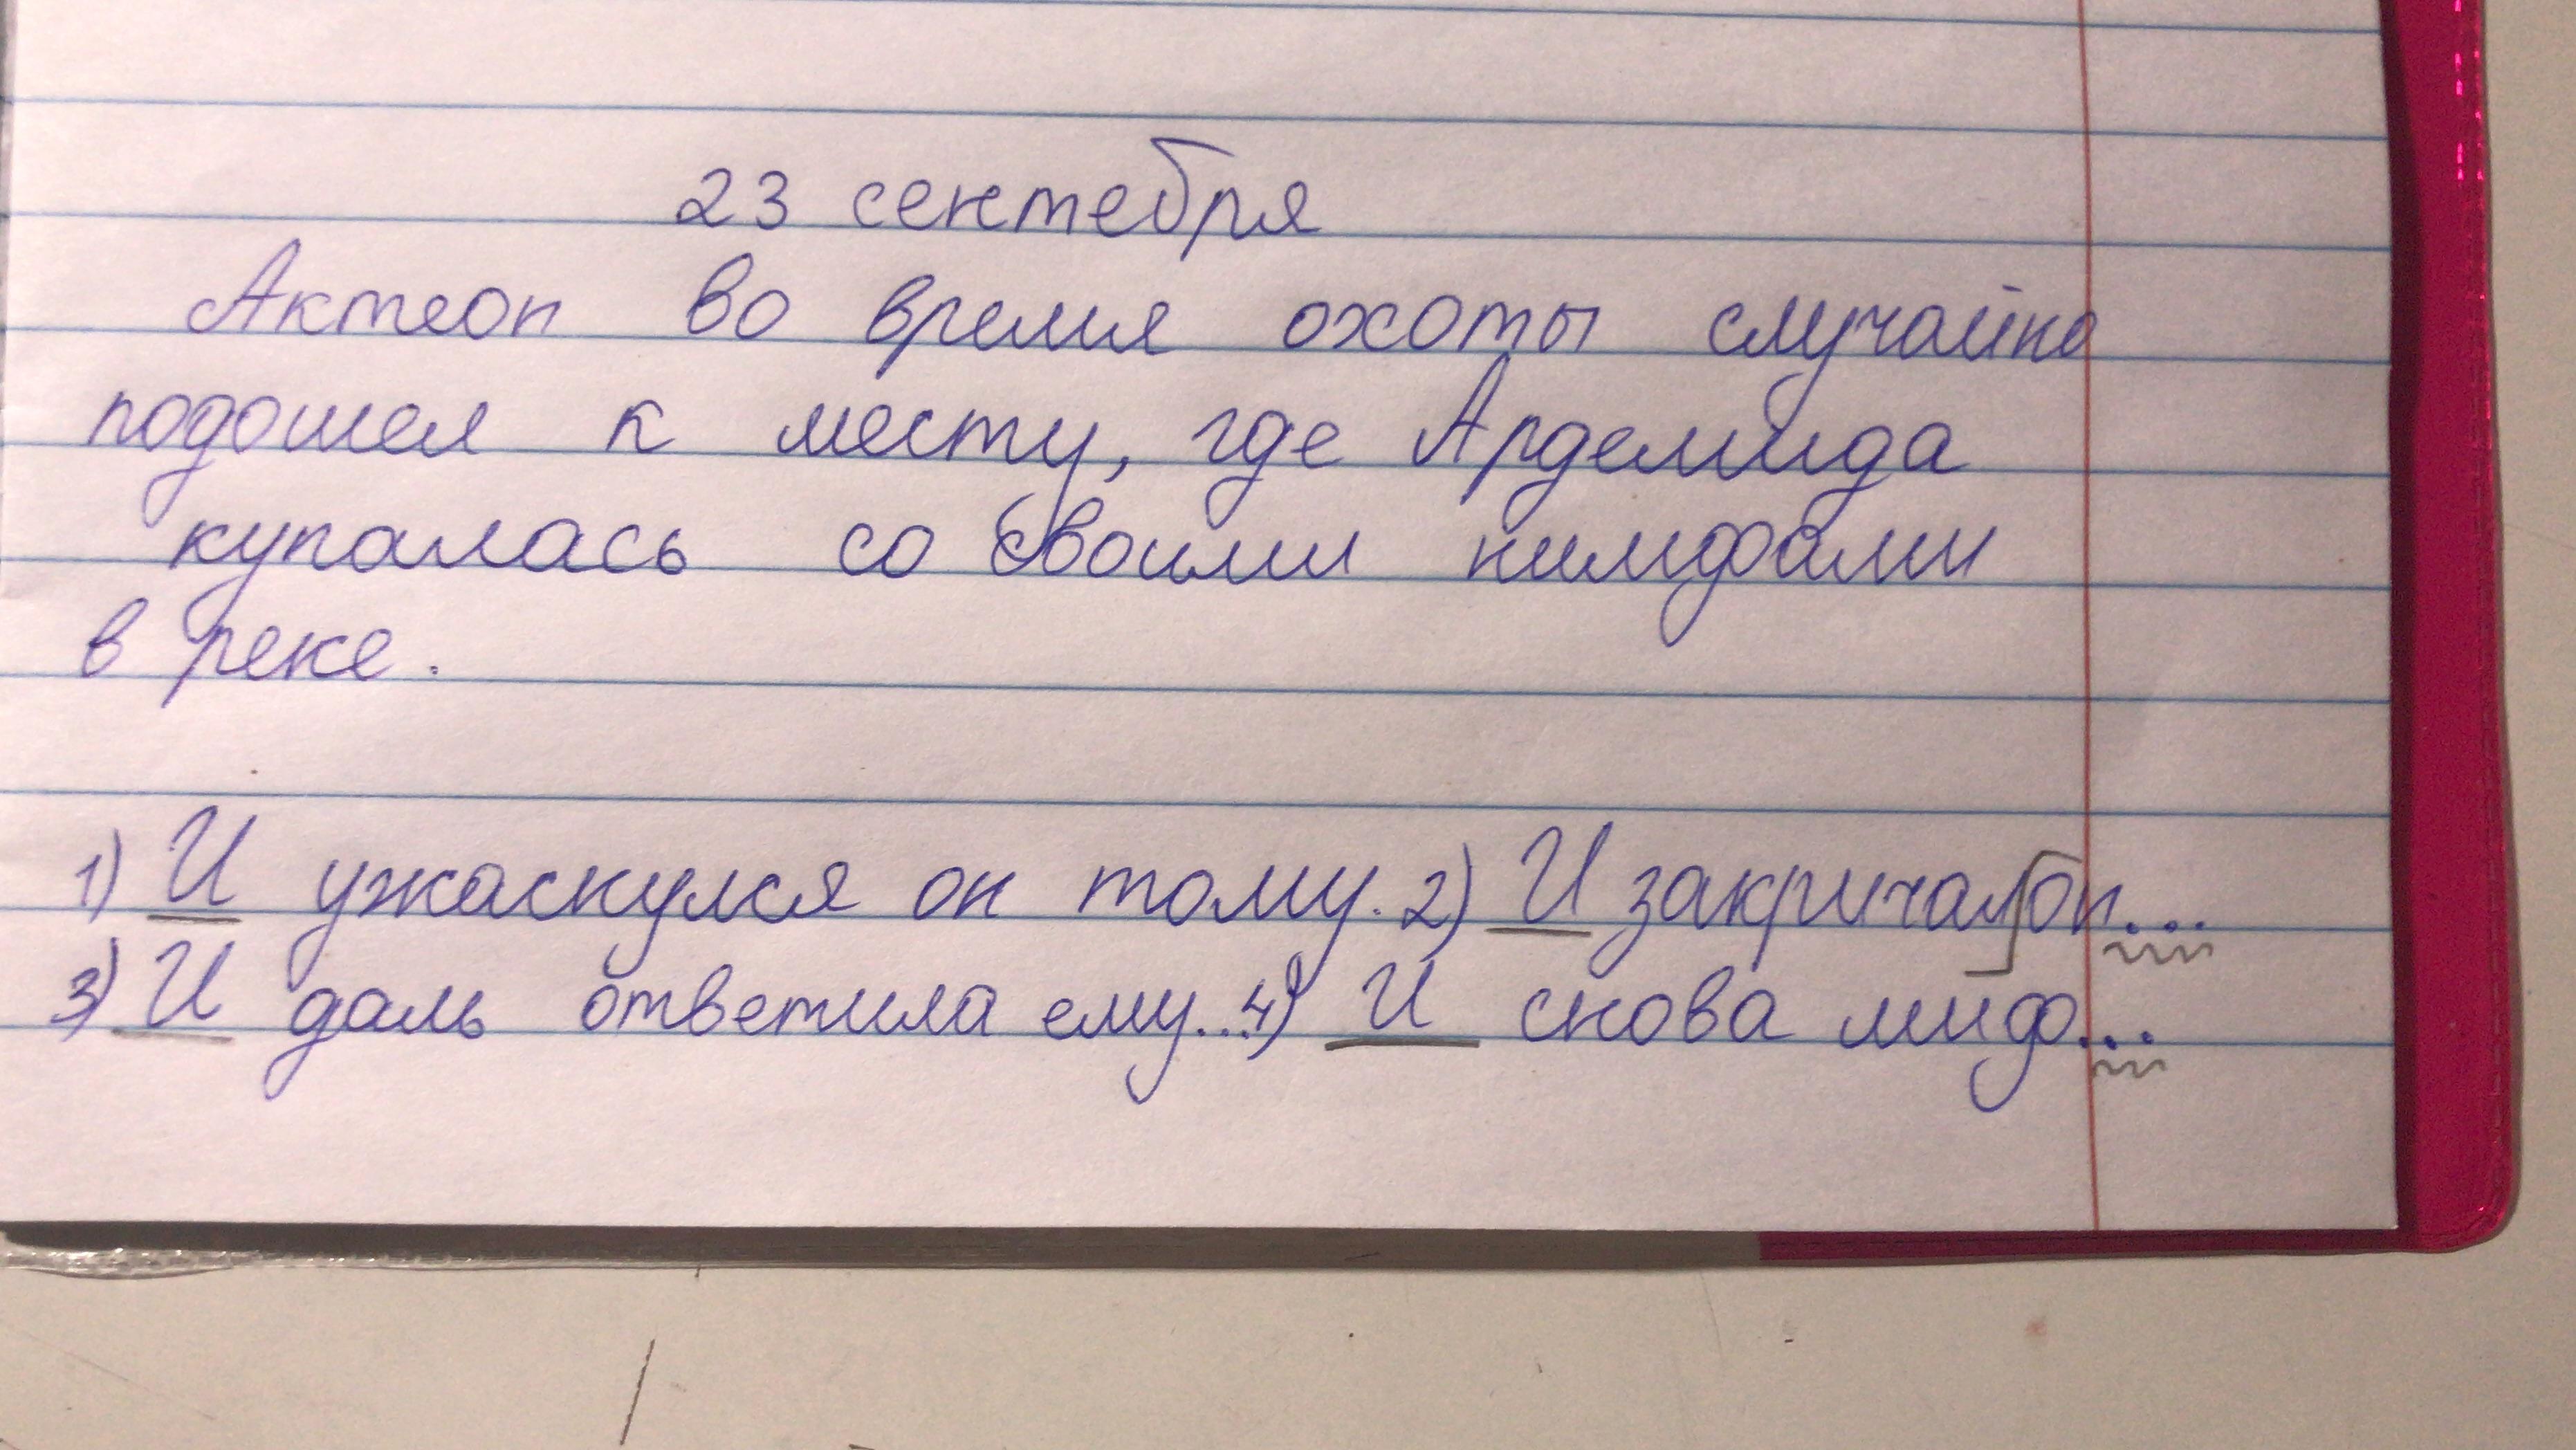 23 сентебря
Актеон во время охоты случайно
подошел к месту, где Ардемида
купалась со своими нимфами
в реке.
1) И ужаснулся он тому. 2) И закричал он...
3) И даль ответила ему... 4) И снова миф...